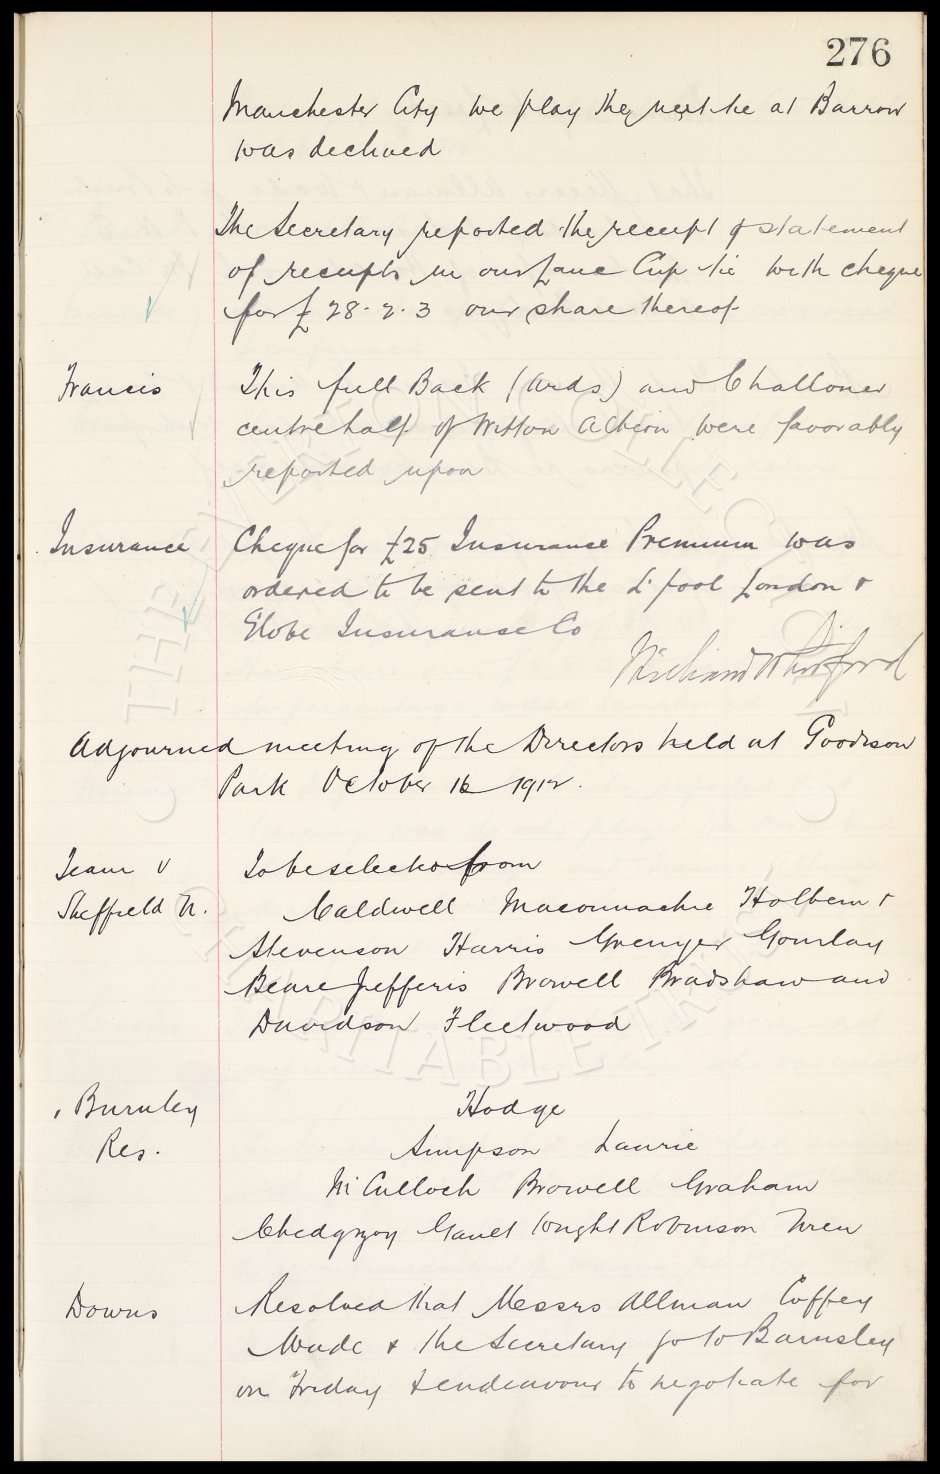 276
Manchester City we play the next tie at Barrow
was declined
The Secretary reported the receipt of statement
of receipts in our Lanc Cup tie with cheque
for £28-2-3 our share thereof
Francis This full Back (Ards) and Challoner
centre half of Witton Albion were favorably
reported upon
Insurance Cheque for £25 Insuranse Premium was
ordered to be sent to the L'pool London &
Globe Insuranse Co
Adjourned meeting of the Directors held at Goodison
Park October 16 1912.
Team v To be selected from
Sheffield U. Caldwell Maconnachie Holbem &
Stevenson Harris Grenyer Gourlay
Beare Jefferis Browell Bradshaw and
Davidson Fleetwood
, Burnley Hodge
Res. Simpson Laurie
McCulloch Browell Graham
Chedgzoy Gault Wright Robinson Uren
Downs Resolved that Messrs Allman Coffey
Wade & the Secretary go to Barnsley
on Friday & endeavour to negotiate for
THE EVERTON COLLECTION
CHARITABLE TRUST